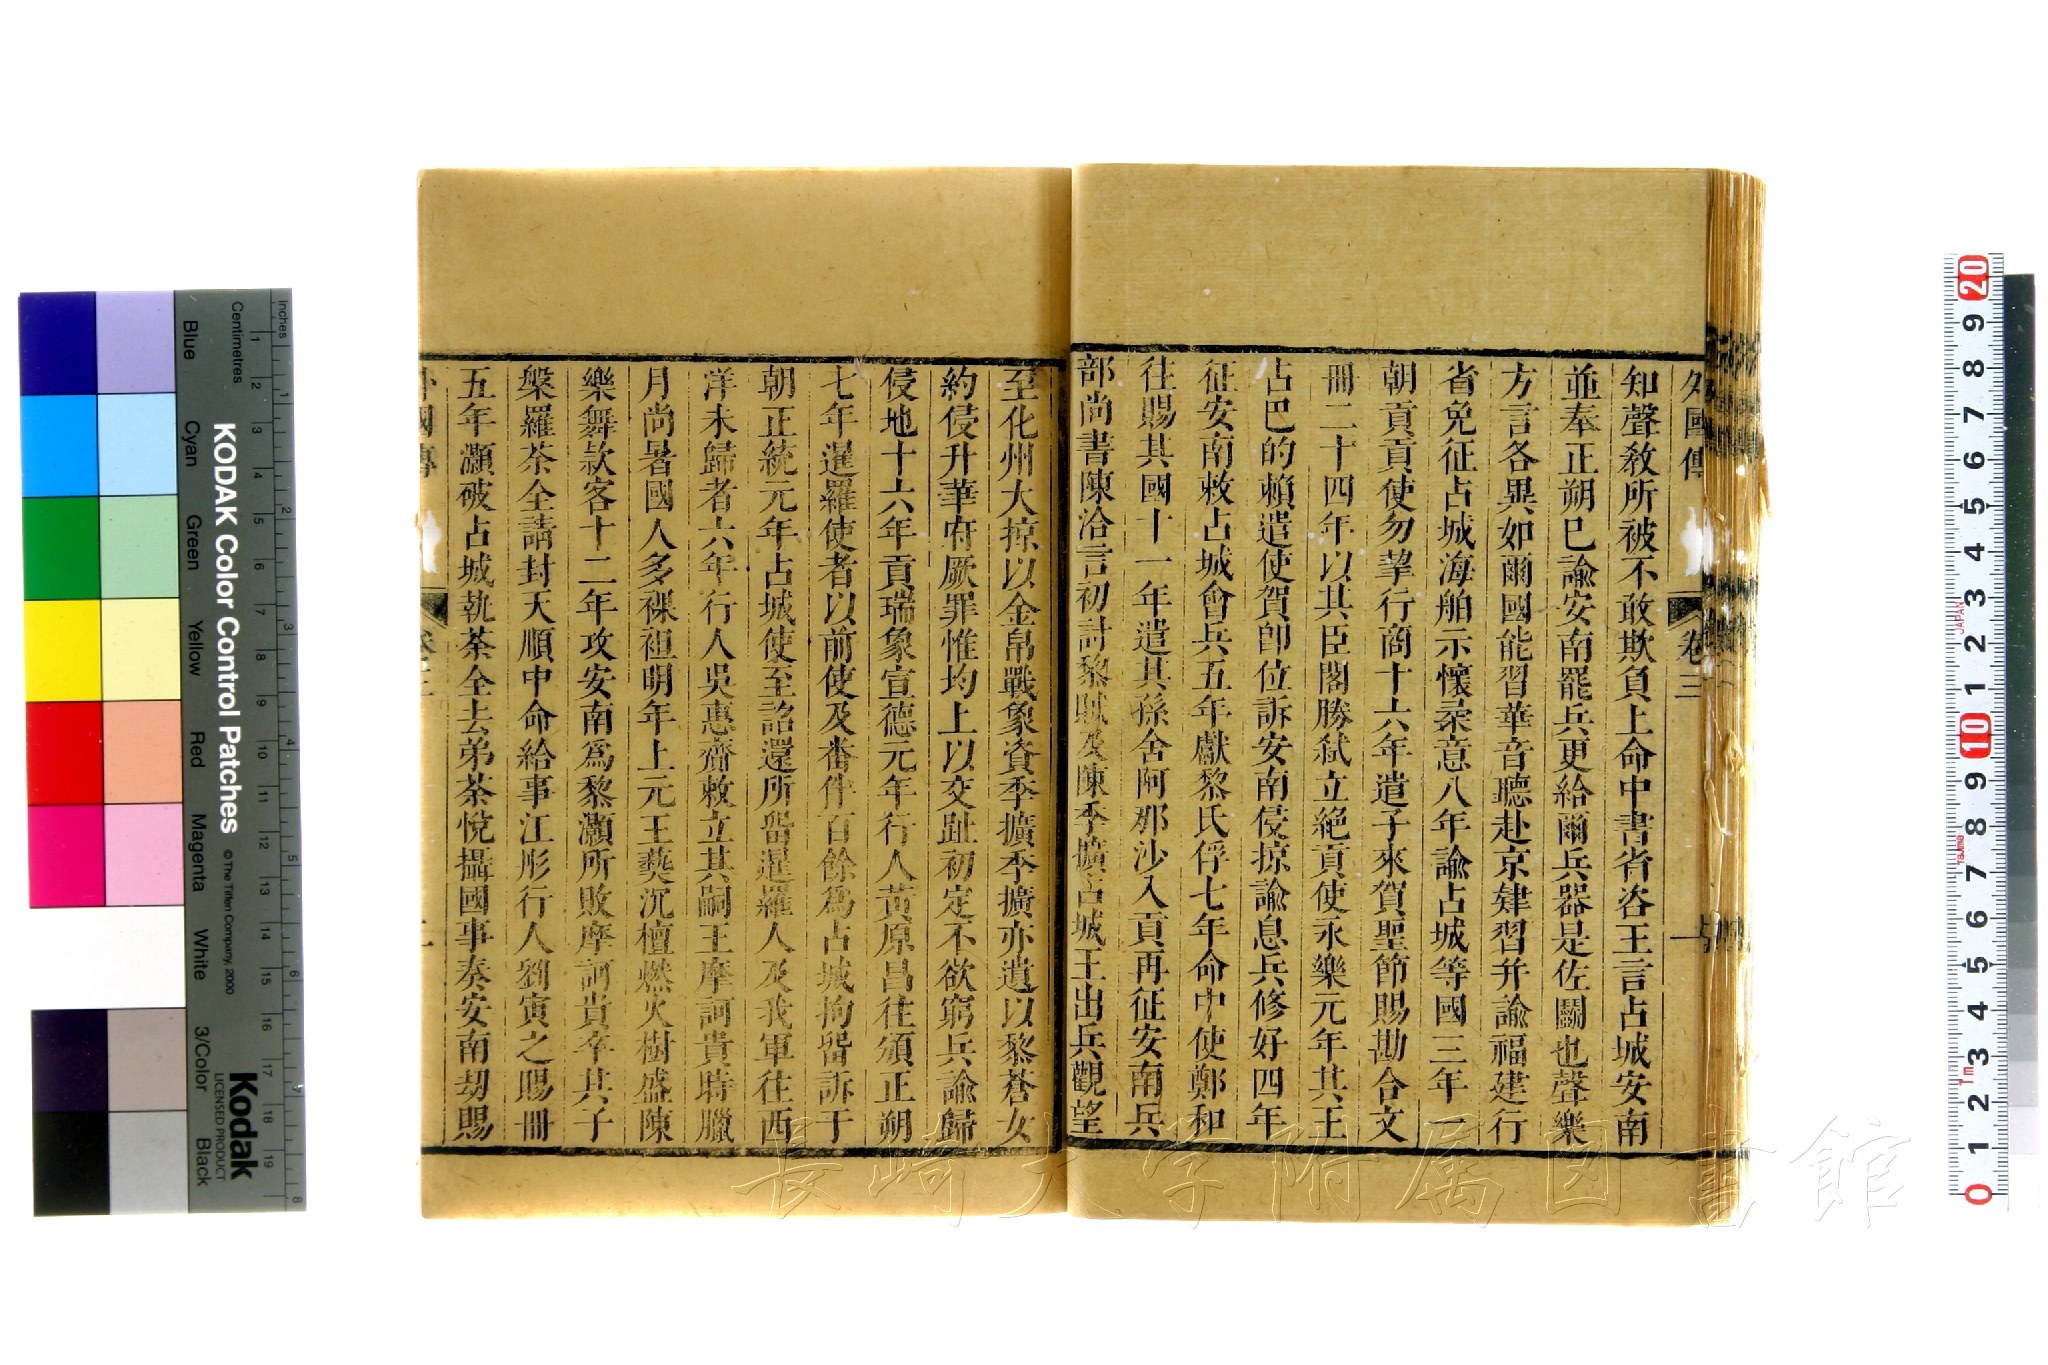 外國傳 卷三 一
知聲敎所被不敢欺負上命中書省咨王言占城安南
並奉正朔巳諭安南罷兵更給爾兵器是佐鬬也聲樂
方言各異如爾國能習華音聽赴京肄習并諭福建行
省免征占城海舶示懷柔意八年諭占城等國三年一
朝貢貢使勿挈行商十六年遣子來賀聖節賜勘合文
冊二十四年以其臣閣勝弑立絶貢使永樂元年其王
占巴的賴遣使賀卽位訴安南侵掠諭息兵修好四年
征安南敕占城會兵五年獻黎氏俘七年命中使鄭和
往賜其國十一年遣其孫舍阿那沙入貢再征安南兵
部尚書陳洽言初討黎賊及陳季擴占城王出兵觀望
至化州大掠以金帛戰象資季擴季擴亦遺以黎蒼女
約侵升華府厥罪惟均上以交趾初定不欲窮兵諭歸
侵地十六年貢瑞象宣德元年行人黃原昌往頒正朔
七年暹羅使者以前使及畨伴百餘爲占城拘畱訴于
朝正統元年占城使至詔還所畱暹羅人及我軍往西
洋未歸者六年行人吳惠齎敕立其嗣王摩訶貴時臘
月尚暑國人多裸袒明年上元王爇沉檀燃火樹盛陳
樂舞款客十二年攻安南爲黎灝所敗摩訶貴卒其子
槃羅茶全請封天順中命給事江彤行人劉寅之賜冊
五年灝破占城執茶全去弟茶悅攝國事奏安南刧賜
外國傳 卷三 二
長崎大学附属図書館
KODAK Color Control Patches
© The Tiffen Company, 2000
Kodak
LICENSED PRODUCT
Inches
Centimetres
Blue
Cyan
Green
Yellow
Red
Magenta
White
3/Color
Black
1 2 3 4 5 6 7 8 9 10 11 12 13 14 15 16 17 18 19
1 2 3 4 5 6 7 8
20 9 8 7 6 5 4 3 2 1 10 9 8 7 6 5 4 3 2 1 0
JAPAN
Tajima
1m